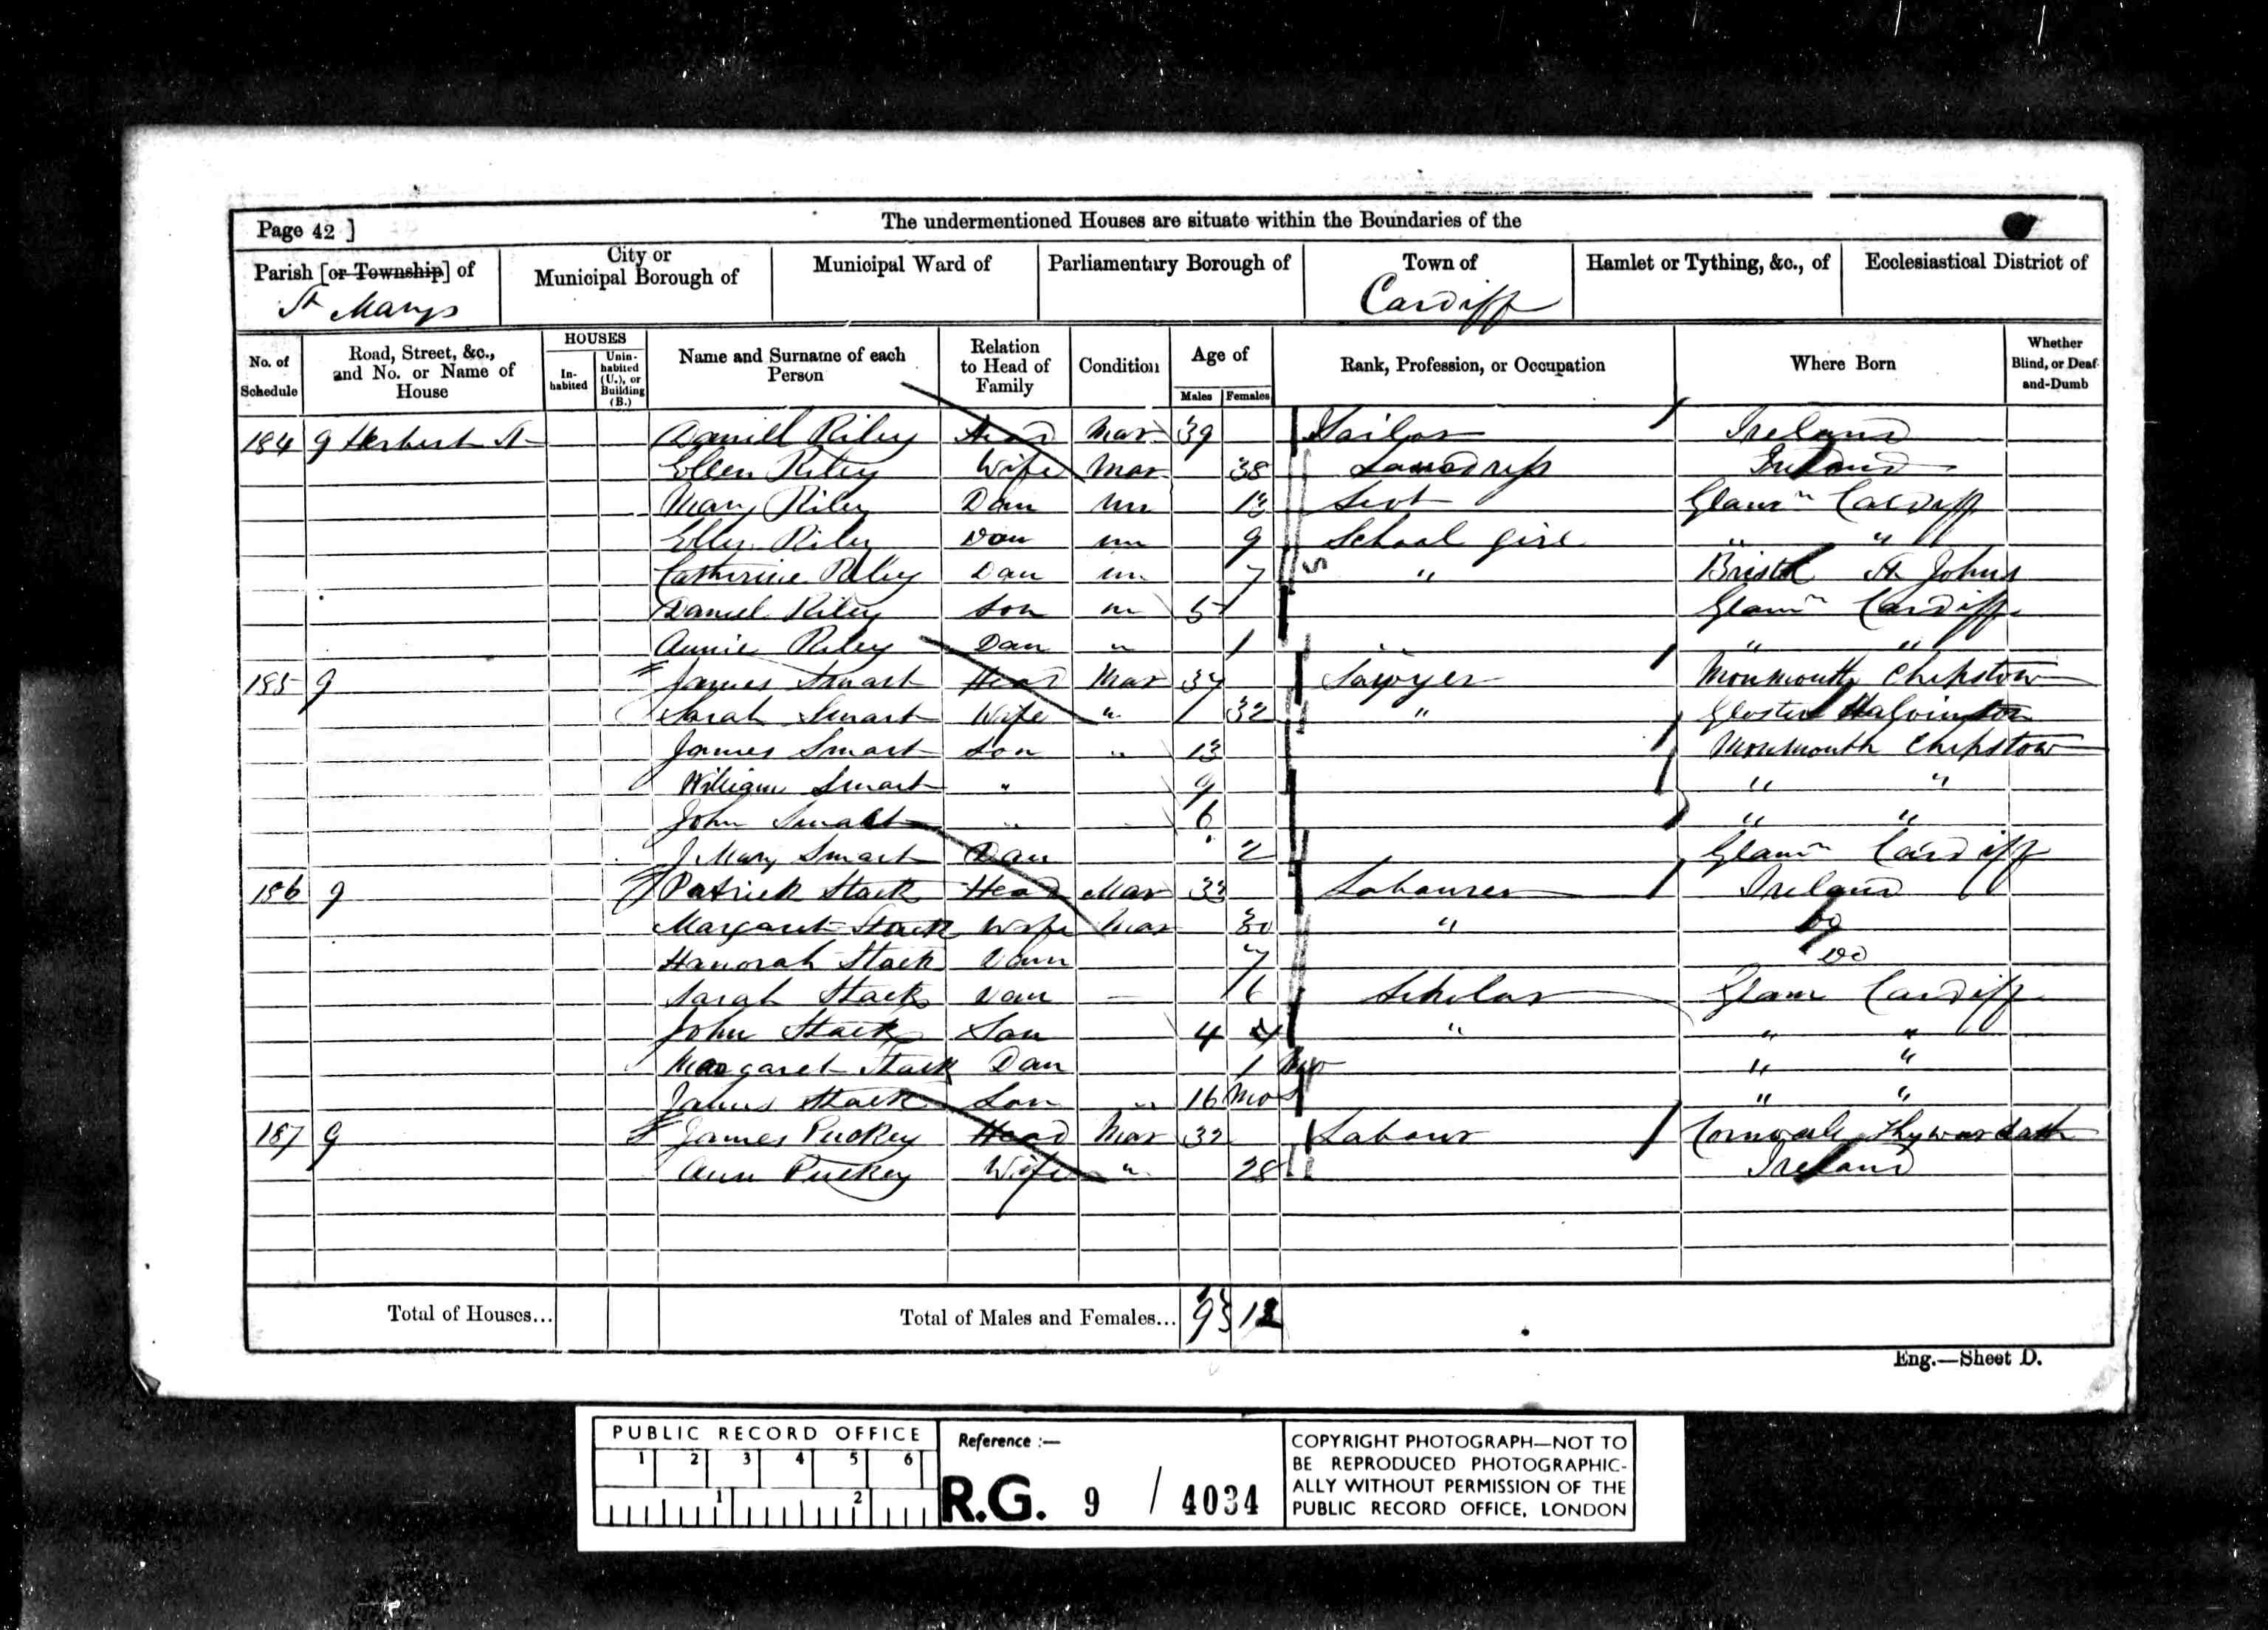 Page 42 ] The undermentioned Houses are situate within the Boundaries of the
Parish [or Township] of City or Municipal Borough of Municipal Ward of Parliamentary Borough of Town of Hamlet or Tything, &c., of Ecclesiastical District of
St Marys Cardiff
No. of Schedule Road, Street, &c., and No. or Name of House HOUSES Inhabited Uninhabited (U.), or Building (B.) Name and Surname of each Person Relation to Head of Family Condition Age of Males Females Rank, Profession, or Occupation Where Born Whether Blind, or Deaf-and-Dumb
184 9 Herbert St Daniel Riley Head Mar 39 Ireland
Ellen Riley Wife Mar 38 Laundress Ireland
Mary Riley Dau un Servt Glamn Cardiff
Ellen Riley Dau un 9 School girl " "
Catherine Riley Dau un 7 " Bristol St Johns
Daniel Riley Son un 5 Glamn Cardiff
Annie Riley Dau " 1 " "
185 9 James Smart Head Mar 37 Sawyer Monmouth Chepstow
Sarah Smart Wife " 32 " Gloster
James Smart Son " 13 Monmouth Chepstow
William Smart " 9 " "
John Smart " 6 " "
Mary Smart Dau 2 Glamn Cardiff
186 9 Patrick Stack Head Mar 33 Labourer Ireland
Margaret Stack Wife Mar 30 " Do
Hanorah Stack Daur 7 Do
Sarah Stack Dau 6 Scholar Glam Cardiff
John Stack Son 4 4 " " "
Margaret Stack Dau 1 " "
James Stack Son " 16 Mos " "
187 9 James Puckey Head Mar 32 Labour Cornwall
Ann Puckey Wife " 28 Ireland
Total of Houses... Total of Males and Females... 9 12
Eng.—Sheet D.
PUBLIC RECORD OFFICE
1 2 3 4 5 6
1 2
Reference :—
R.G. 9 / 4034
COPYRIGHT PHOTOGRAPH—NOT TO
BE REPRODUCED PHOTOGRAPHIC-
ALLY WITHOUT PERMISSION OF THE
PUBLIC RECORD OFFICE, LONDON